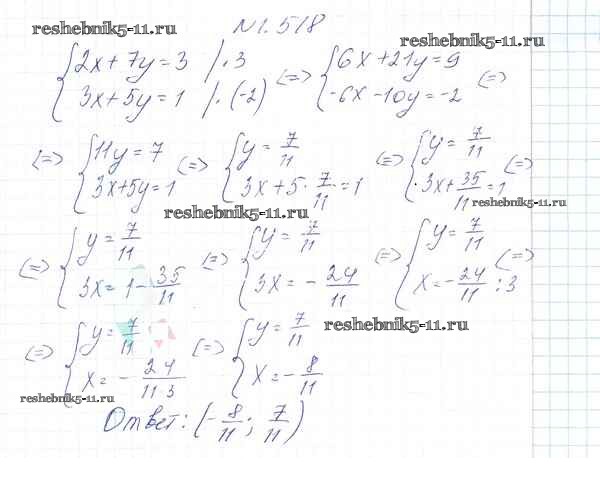 reshebnik5-11.ru
N 1.518
reshebnik5-11.ru
{2x + 7y = 3 | · 3 {3x + 5y = 1 | · (-2) <=> {6x + 21y = 9 {-6x - 10y = -2 <=>
<=> {11y = 7 {3x + 5y = 1 <=> {y = 7/11 {3x + 5 · 7/11 = 1 <=> {y = 7/11 {3x + 35/11 = 1 <=>
reshebnik5-11.ru
reshebnik5-11.ru
<=> {y = 7/11 {3x = 1 - 35/11 <=> {y = 7/11 {3x = - 24/11 <=> {y = 7/11 {x = - 24/11 : 3 <=>
reshebnik5-11.ru
<=> {y = 7/11 {x = - 24/11·3 <=> {y = 7/11 {x = - 8/11
reshebnik5-11.ru
Ответ: (- 8/11; 7/11)